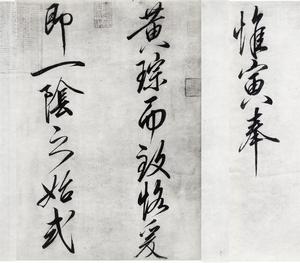 惟寅奉
黄琮而致恪爰
即一陰之始式